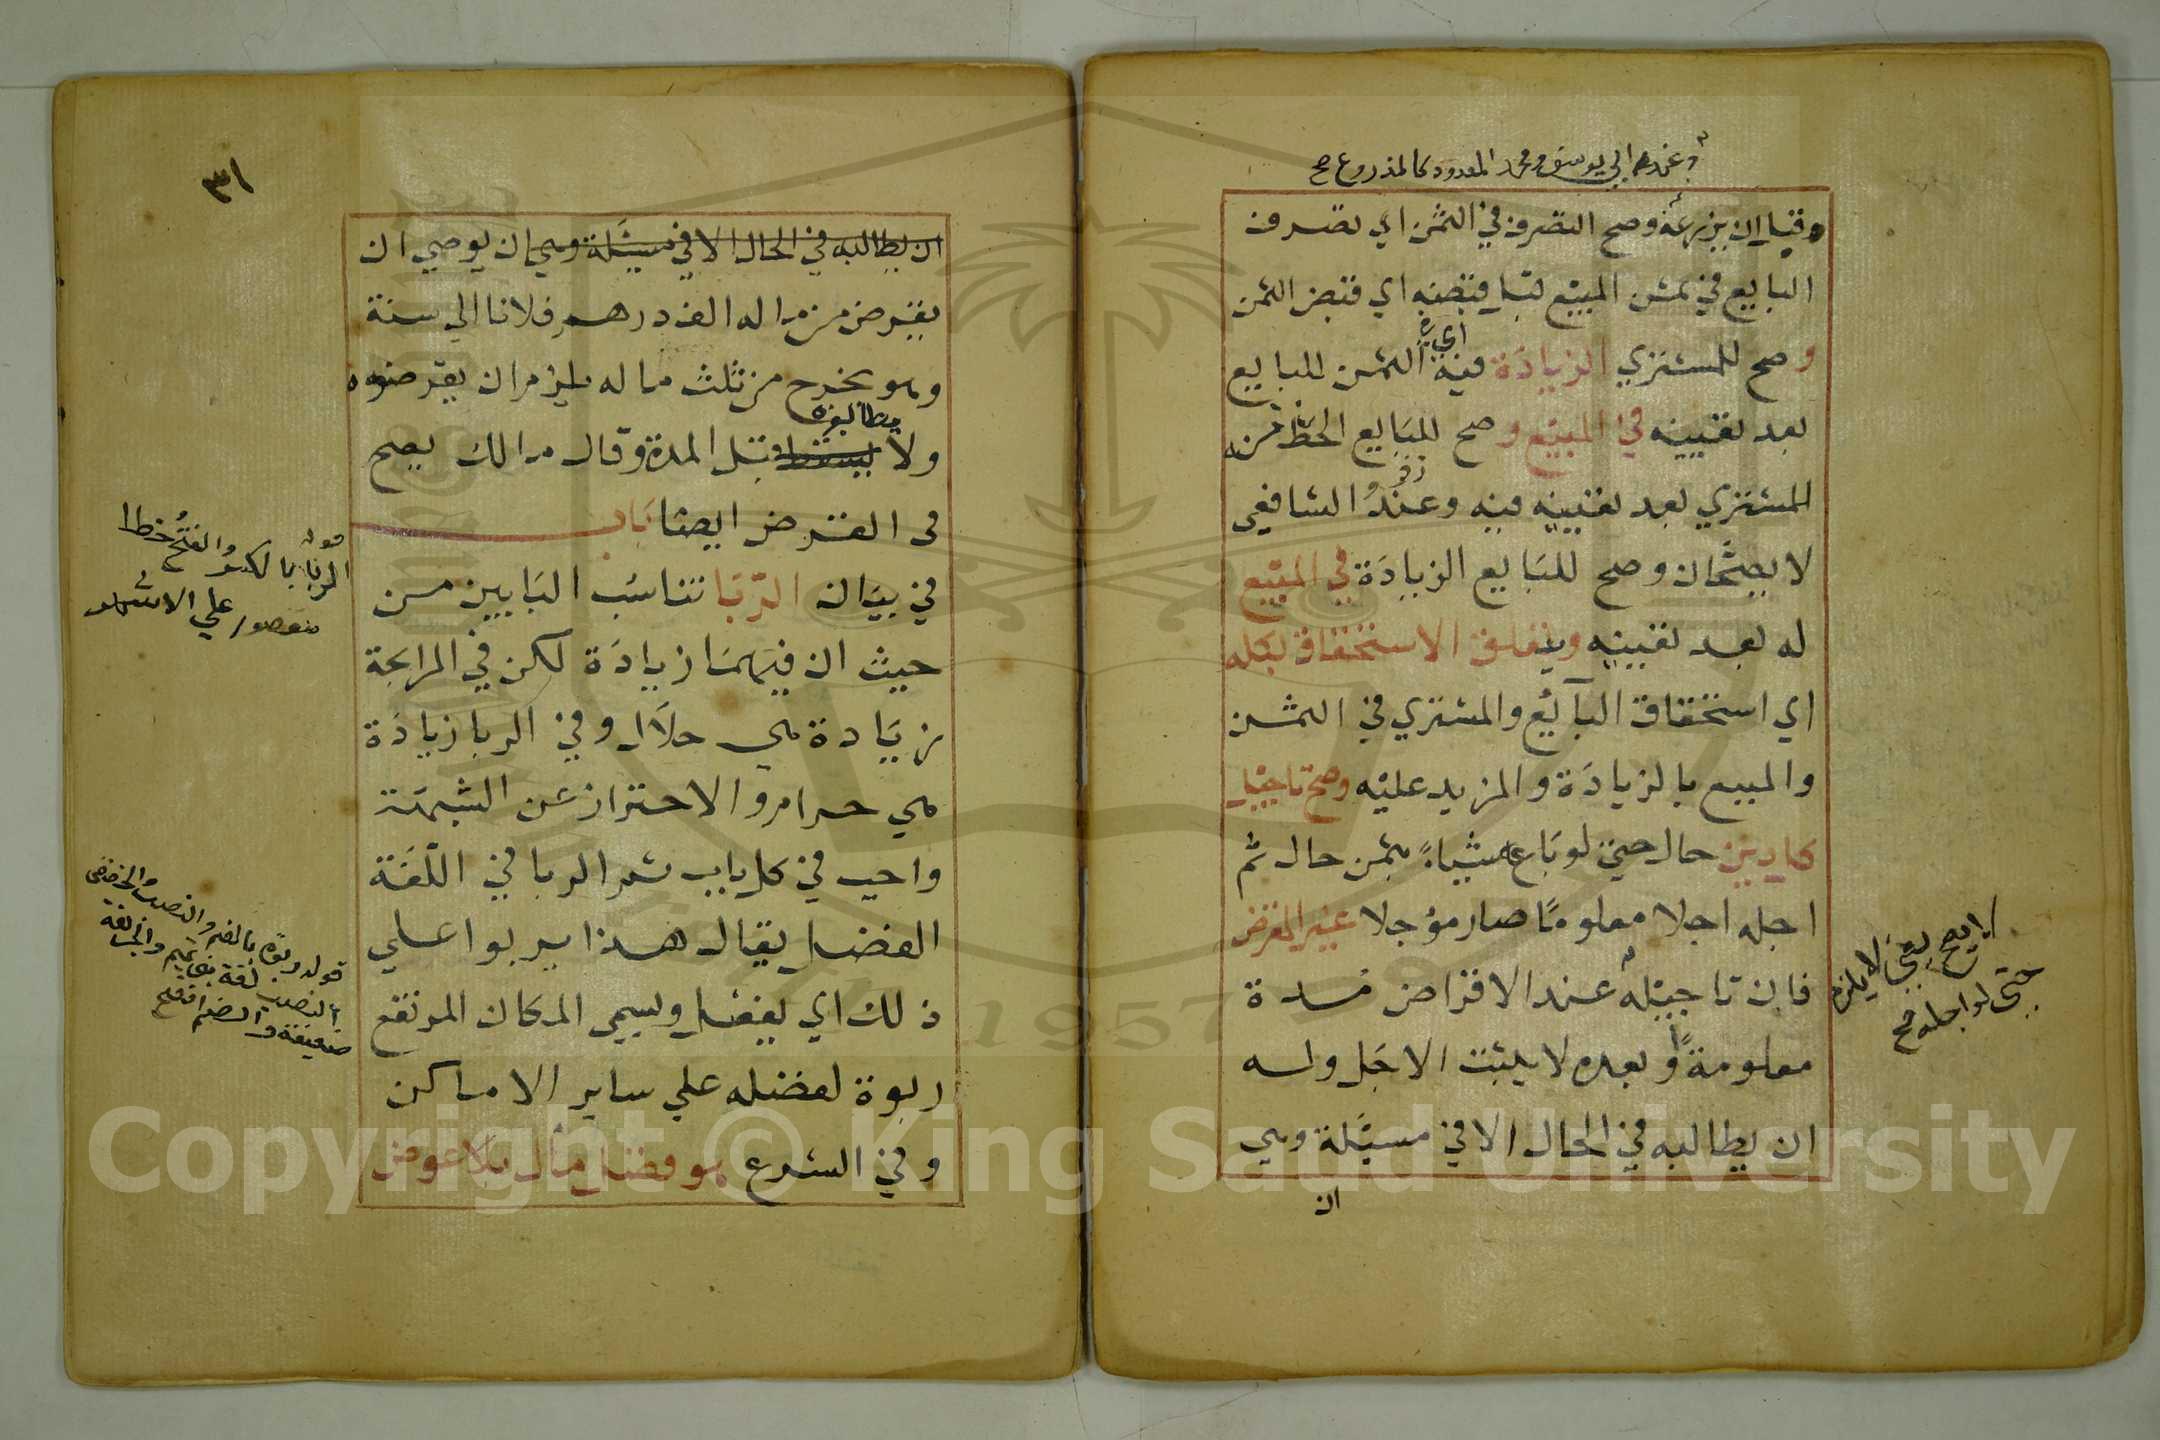 وعند ابي يوسف ومحمد المعدود كالمذروع صح
وقيل ان يزرعه وصح التصرف في الثمن اي تصرف
البايع في ثمن المبيع قبل قبضه اي قبض الثمن
وصح للمشتري الزيادة فيه اي الثمن للبايع
بعد تقبيضه في المبيع وصح للبايع الحط منه
للمشتري بعد تقبيضه فيه وعند زفر والشافعي
لا يصحان وصح للبايع الزيادة في المبيع
له بعد تقبيضه ويتعلق الاستحقاق بكله
اي استحقاق البآئع والمشتري في الثمن
والمبيع بالزيادة والمزيد عليه وصح تاجيل
كل دين حال حتى لو باع شياء بثمن حال ثم
اجله اجلا معلومًا صار مؤجلا غير القرض
فان تاجيله عند الاقراض مدة
معلومة او بعده لا يثبت الاجل وله
ان يطالبه في الحال الا في مسئلة وهي
ان
لا يصح يعني لا يلزم
حتى لو اجله صح
٣١
ان يطالبه في الحال الا في مسئلة وهي ان يوصي ان
يقرض من ماله الف درهم فلانا الي سنة
وهو يخرج من ثلث ماله يلزم ان يقرضوه
ولا يطالبوه قبل المدة وقال مالك يصح
في القرض ايضا باب
في بيان الربا تناسب البابين من
حيث ان فيهما زيادة لكن في المرابحة
زيادة هي حلال وفي الربا زيادة
هي حرام والاحتراز عن الشبهة
واجب في كل باب ثم الربا في اللغة
الفضل يقال هذا يربوا علي
ذلك اي يفضل ويسمى المكان المرتفع
ربوة لفضله علي ساير الاماكن
وفي الشرع هو فضل مال بلا عوض
قوله
الربا بالكسر والفتح خطا
مقصور علي الاشهر
قوله ربوة بالضم والنصب والخفض
لغة تميم
النصب
ضعيفة والضم افصح